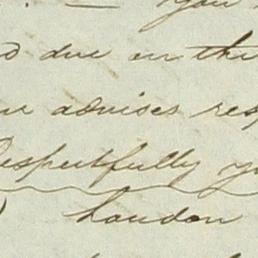 you
due on this
advises res
Respectfully yo
London